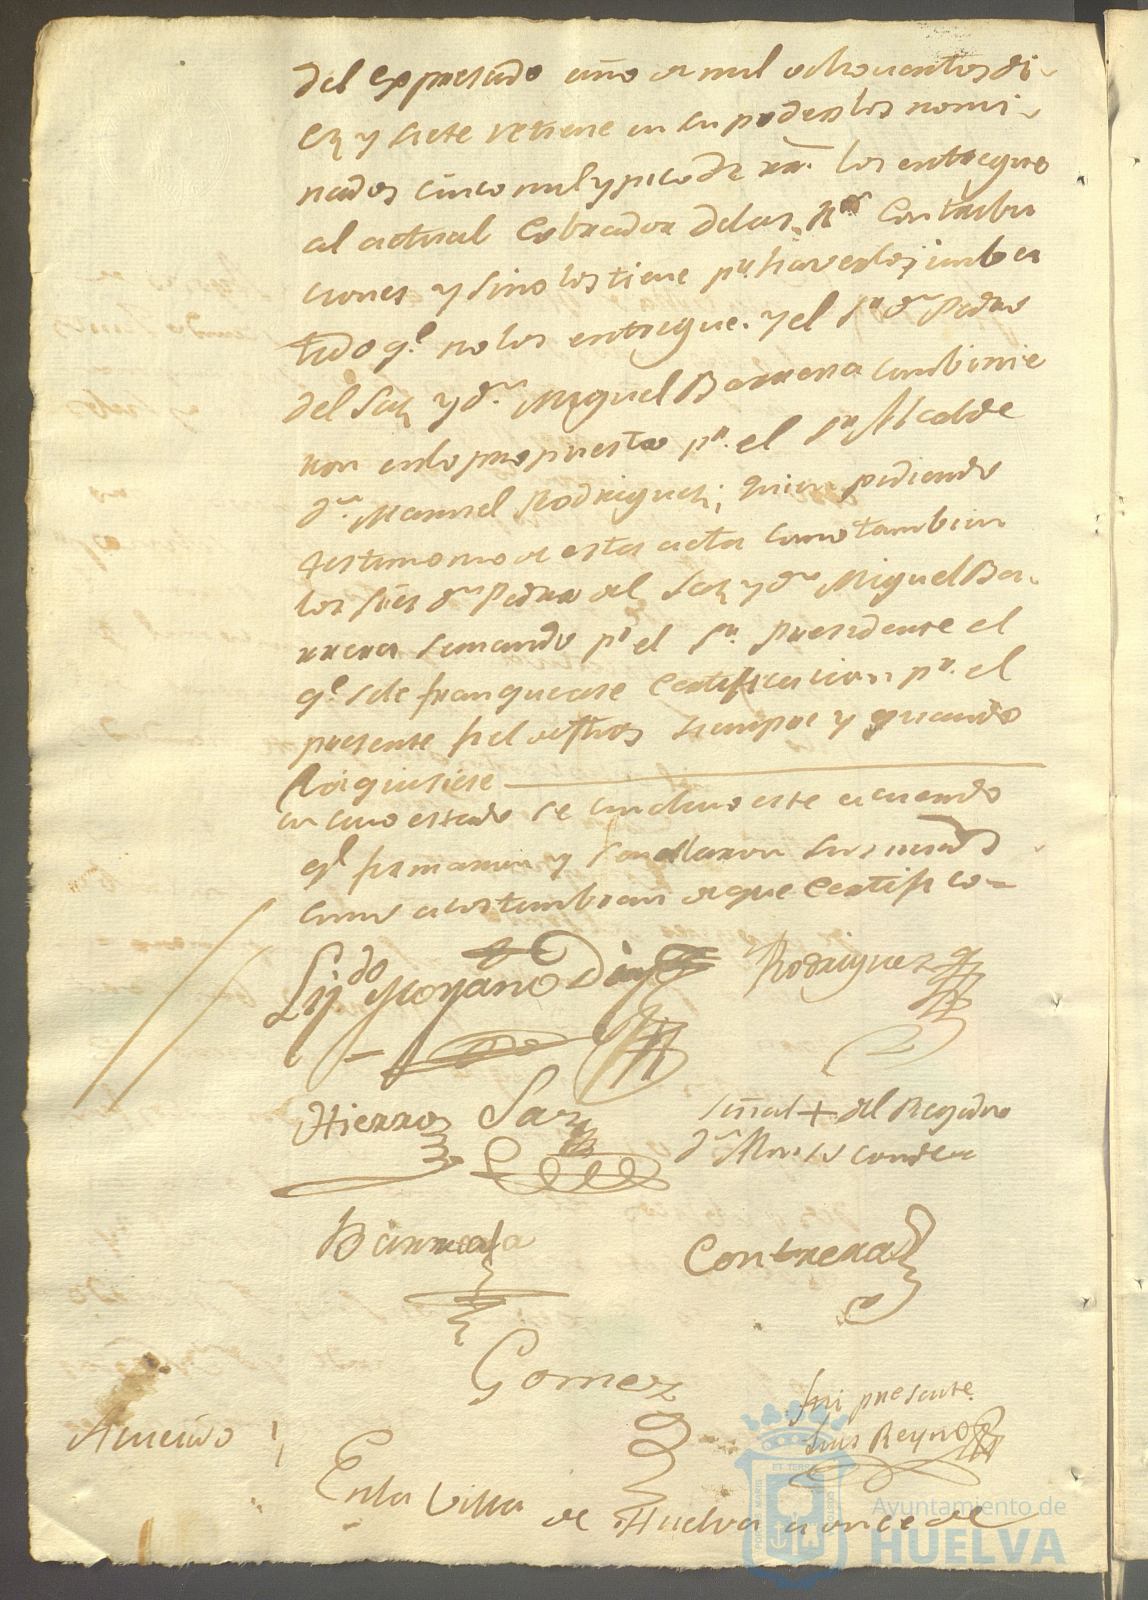 del expresado año de mil ochocientos di-
ez y siete retiene en su poder los nomi-
nados cinco mil y pico de rr.^s los entregue
al actual Cobrador de las R.^s Contribu
ciones y sino los tiene p.^r haverlos imber
tido q.^e no los entregue. y el S.^r d.^n Pedro
del Saz y d.^n Miguel Barrera combinie
ron en lo propuesto p.^r el S.^r Alcalde
d.^n Manuel Rodriguez; quien pidiendo
testimonio de esta acta como tambien
los S.^res d.^n Pedro del Saz y d.^n Miguel Ba-
rrera se mando p.^r el S.^r Presidente el
q.^e se le franquease Certificacion p.^r el
presente fiel de fhos siempre y quando
la quisiese
en cuio estado se concluio este acuerdo
q.^e firmaron y señalaron sus mrds
como acostumbran de que Certifico=
Lizdo Moyano Diaz Rodriguez
Hierro Saz señal + del Regidor
d.^n Conde
Barrera Contreras
Gomez
fui presente
Luis Reyno
Acuerdo
En la Villa de Huelva a once de
Ayuntamiento de
HUELVA